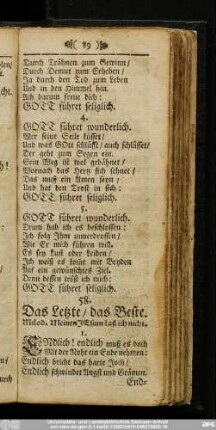 ( 89 )
Durch Trähnen zum Gewinn/
Durch Demut zum Erheben/
Ja durch den Tod zum Leben
Und in den Himmel hin.
Ach darum freue dich:
GOTT führet seliglich.
4.
GOTT führet wunderlich.
Wer seine Seile küsset/
Und was GOtt schlüßt/ auch schlüsset/
Der geht zum Segen ein.
Sein Weg ist wol gebähnet/
Wornach das Hertz sich sehnet/
Das muß ein Amen seyn/
Und das den Trost in sich:
GOTT führet seliglich.
5.
GOTT führet wunderlich.
Drum hab ich es beschlossen:
Ich folg Ihm unverdrossen/
Wie Er mich führen will.
Es sey Lust oder Leiden/
Ich weiß es führt mit Beyden
Auf ein gewünschtes Ziel.
Denn dessen tröst ich mich:
GOTT führet seliglich.
58.
Das Letzte/ das Beste.
Melod. Meinen JEsum laß ich nicht.
1.
ENdlich! endlich muß es doch
Mit der Nohte ein Ende nehmen:
Endlich bricht das harte Joch/
Endlich schwindet Angst und Grämen.
End-